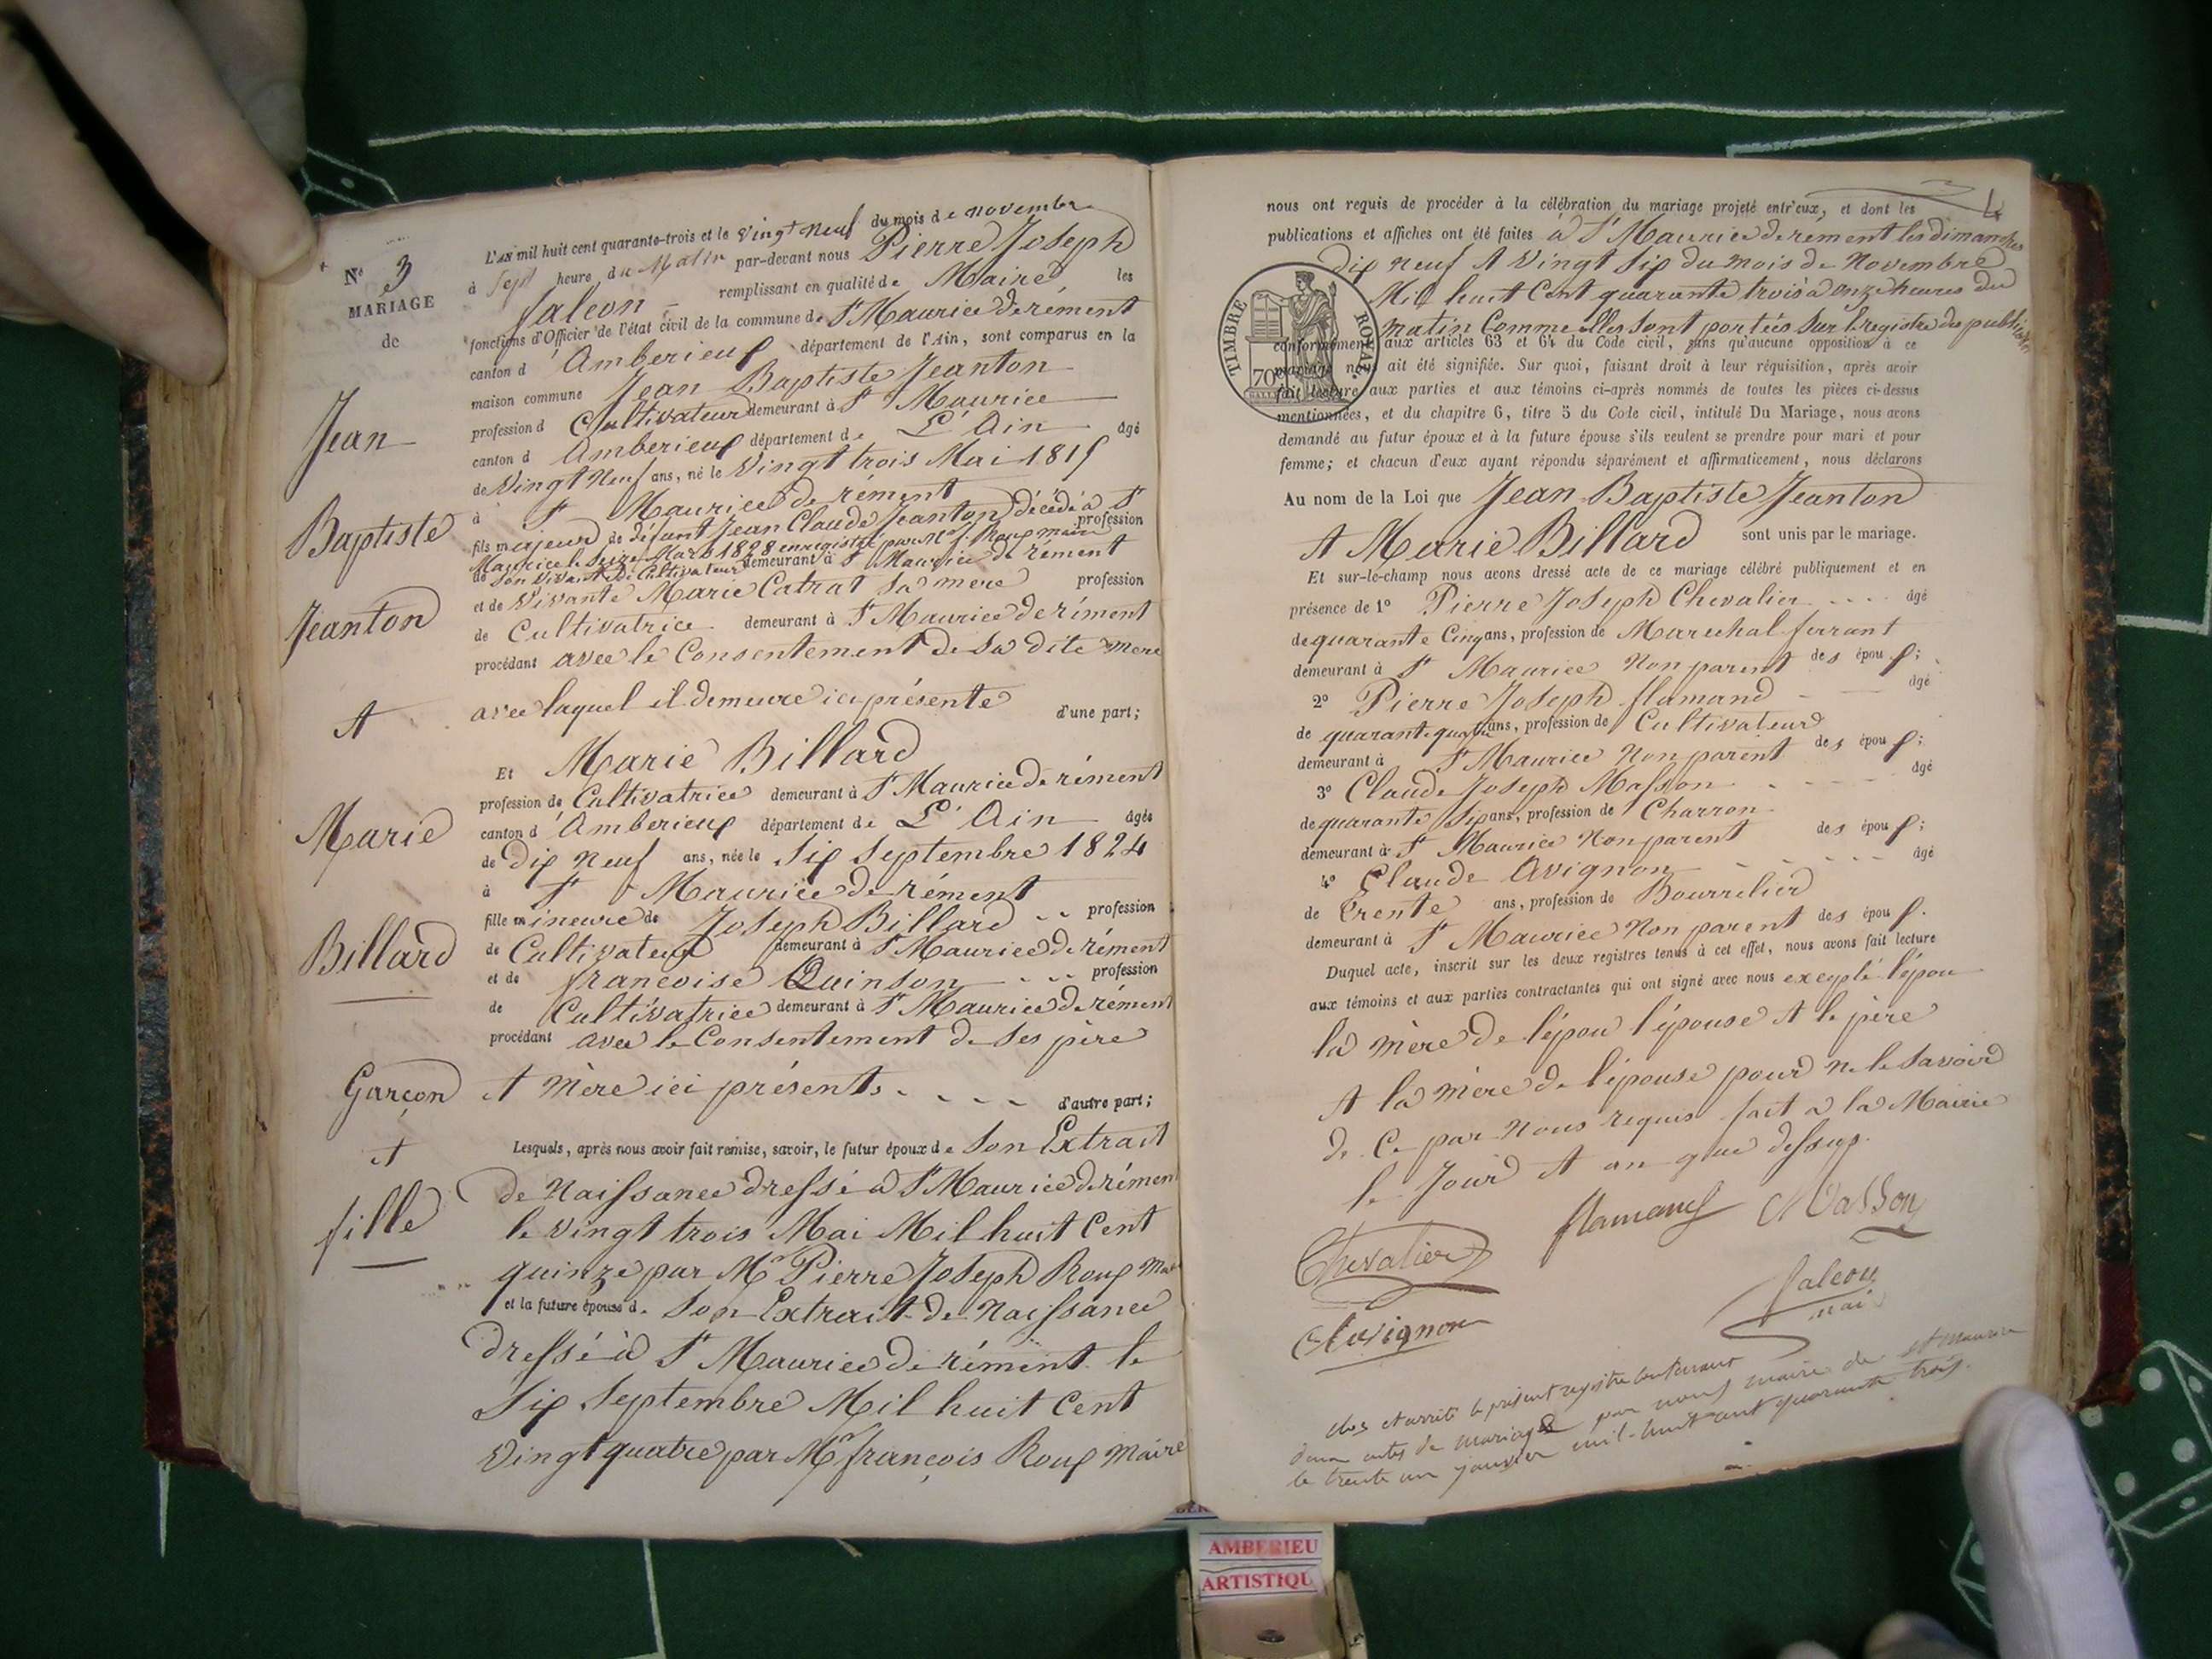 Nº 3
MARIAGE
de
Jean
Baptiste
Jeanton
et
Marie
Billard
Garçon
et
fille
L'an mil huit cent quarante-trois et le vingt neuf du mois de novembre
à sept heure du Matin par-devant nous Pierre Joseph
falcon remplissant en qualité de Maire les
fonctions d'Officier de l'état civil de la commune de St Maurice de rément
canton d'Amberieux département de l'Ain, sont comparus en la
maison commune Jean Baptiste Jeanton
profession d Cultivateur demeurant à St Maurice
canton d Amberieux département de L'Ain âgé
de Vingt Neuf ans, né le Vingt trois Mai 1815
à St Maurice de rément
fils majeur de défunt Jean Claude Jeanton décédé à St
Maurice le Seize Mars 1828 enregistré par Mr f. Roux maire profession
de son vivant de Cultivateur demeurant à St Maurice de rément
et de Vivante Marie Catrat sa mere profession
de Cultivatrice demeurant à St Maurice de rément
procédant avec le Consentement de sa dite mere
avec laquel il demeure ici présente
d'une part;
Et Marie Billard
profession de Cultivatrice demeurant à St Maurice de rément
canton d'Amberieux département de L'Ain âgée
de dix neuf ans, née le six Septembre 1824
à St Maurice de rément
fille mineure de Joseph Billard profession
de Cultivateur demeurant à St Maurice de rément
et de francoise Quinson profession
de Cultivatrice demeurant à St Maurice de rément
procédant avec le Consentement de ses père
et mère ici présents
d'autre part;
Lesquels, après nous avoir fait remise, savoir, le futur époux de son Extrait
de Naissance dressé à St Maurice de rément
le vingt trois Mai Mil huit Cent
quinze par Mr Pierre Joseph Roux Maire
et la future épouse d. son Extrait de Naissance
dressé à St Maurice de rément le
six Septembre Mil huit Cent
Vingt quatre par Mr françois Roux Maire
4
nous ont requis de procéder à la célébration du mariage projeté entr'eux, et dont les
publications et affiches ont été faites à St Maurice de rement les dimanches
dix neuf et vingt six du mois de Novembre
Mil huit Cent quarante trois à onze heures du
matin Comme elles sont portées sur le registre des publications
TIMBRE ROYAL
70c
conformément aux articles 63 et 64 du Code civil, sans qu'aucune opposition à ce
mariage nous ait été signifiée. Sur quoi, faisant droit à leur réquisition, après avoir
fait lecture aux parties et aux témoins ci-après nommés de toutes les pièces ci-dessus
mentionnées, et du chapitre 6, titre 5 du Code civil, intitulé Du Mariage, nous avons
demandé au futur époux et à la future épouse s'ils veulent se prendre pour mari et pour
femme; et chacun d'eux ayant répondu séparément et affirmativement, nous déclarons
Au nom de la Loi que Jean Baptiste Jeanton
et Marie Billard sont unis par le mariage.
Et sur-le-champ nous avons dressé acte de ce mariage célébré publiquement et en
présence de 1º Pierre Joseph Chevalier âgé
de quarante Cinq ans, profession de Marechal ferrant
demeurant à St Maurice Non parent des époux;
2º Pierre Joseph flamand âgé
de quarante quatre ans, profession de Cultivateur
demeurant à St Maurice Non parent des époux;
3º Claude Joseph Masson âgé
de quarante six ans, profession de Charron
demeurant à St Maurice Non parent des époux;
4º Claude Avignon âgé
de trente ans, profession de Bourrelier
demeurant à St Maurice Non parent des époux.
Duquel acte, inscrit sur les deux registres tenus à cet effet, nous avons fait lecture
aux témoins et aux parties contractantes qui ont signé avec nous excepté l'époux
la mère de l'époux l'épouse et le père
et la mère de l'épouse pour ne le savoir
de ce par nous requis fait à la Mairie
le Jour et an que dessus.
Chevalier
flamand
Masson
falcon
mai
Avignon
Clos et arrêté le présent registre contenant
actes de mariage par nous maire de st maurice
le trente un janvier mil-huit cent quarante trois.
AMBERIEU
ARTISTIQU